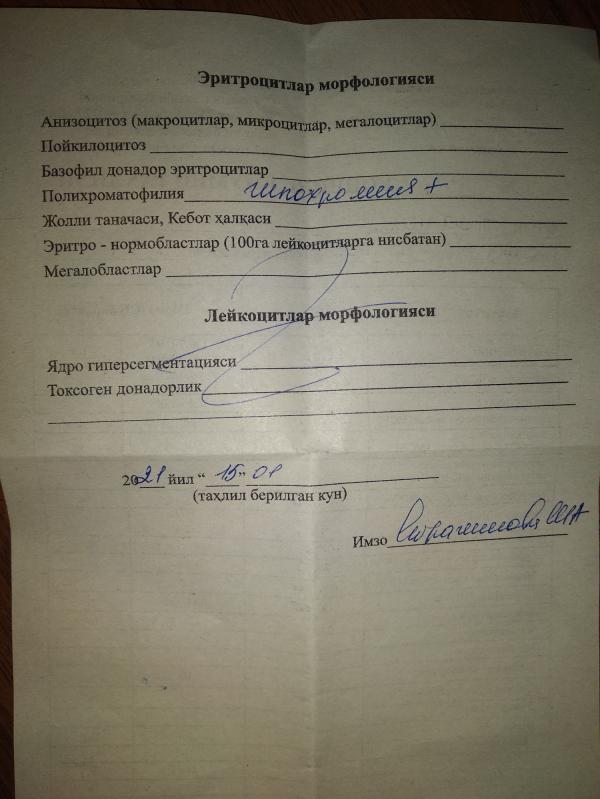 Эритроцитлар морфологияси
Анизоцитоз (макроцитлар, микроцитлар, мегалоцитлар)
Пойкилоцитоз
Базофил донадор эритроцитлар
Полихроматофилия гипохромия +
Жолли таначаси, Кебот ҳалқаси
Эритро - нормобластлар (100га лейкоцитларга нисбатан)
Мегалобластлар
Лейкоцитлар морфологияси
Ядро гиперсегментацияси
Токсоген донадорлик
2021 йил “ 15 ” 01
(таҳлил берилган кун)
Имзо